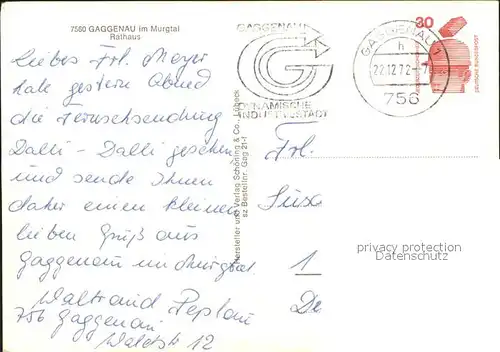 7560 GAGGENAU im Murgtal
Rathaus
Liebes Frl. Meyer
habe gestern Abend
die Fernsehsendung
Dalli - Dalli gesehen
und sende Ihnen
daher einen kleinen
lieben Gruß aus
Gaggenau im Murgtal.
Waltraud Peplau
756 Gaggenau
Waldstr 12
Hersteller und Verlag Schöning & Co., Lübeck
sz Bestellnr. Gag 21-1
GAGGENAU
DYNAMISCHE
INDUSTRIESTADT
GAGGENAU 1
h
22.12.72
756
30
DEUTSCHE BUNDESPOST
Frl.
1
privacy protection
Datenschutz